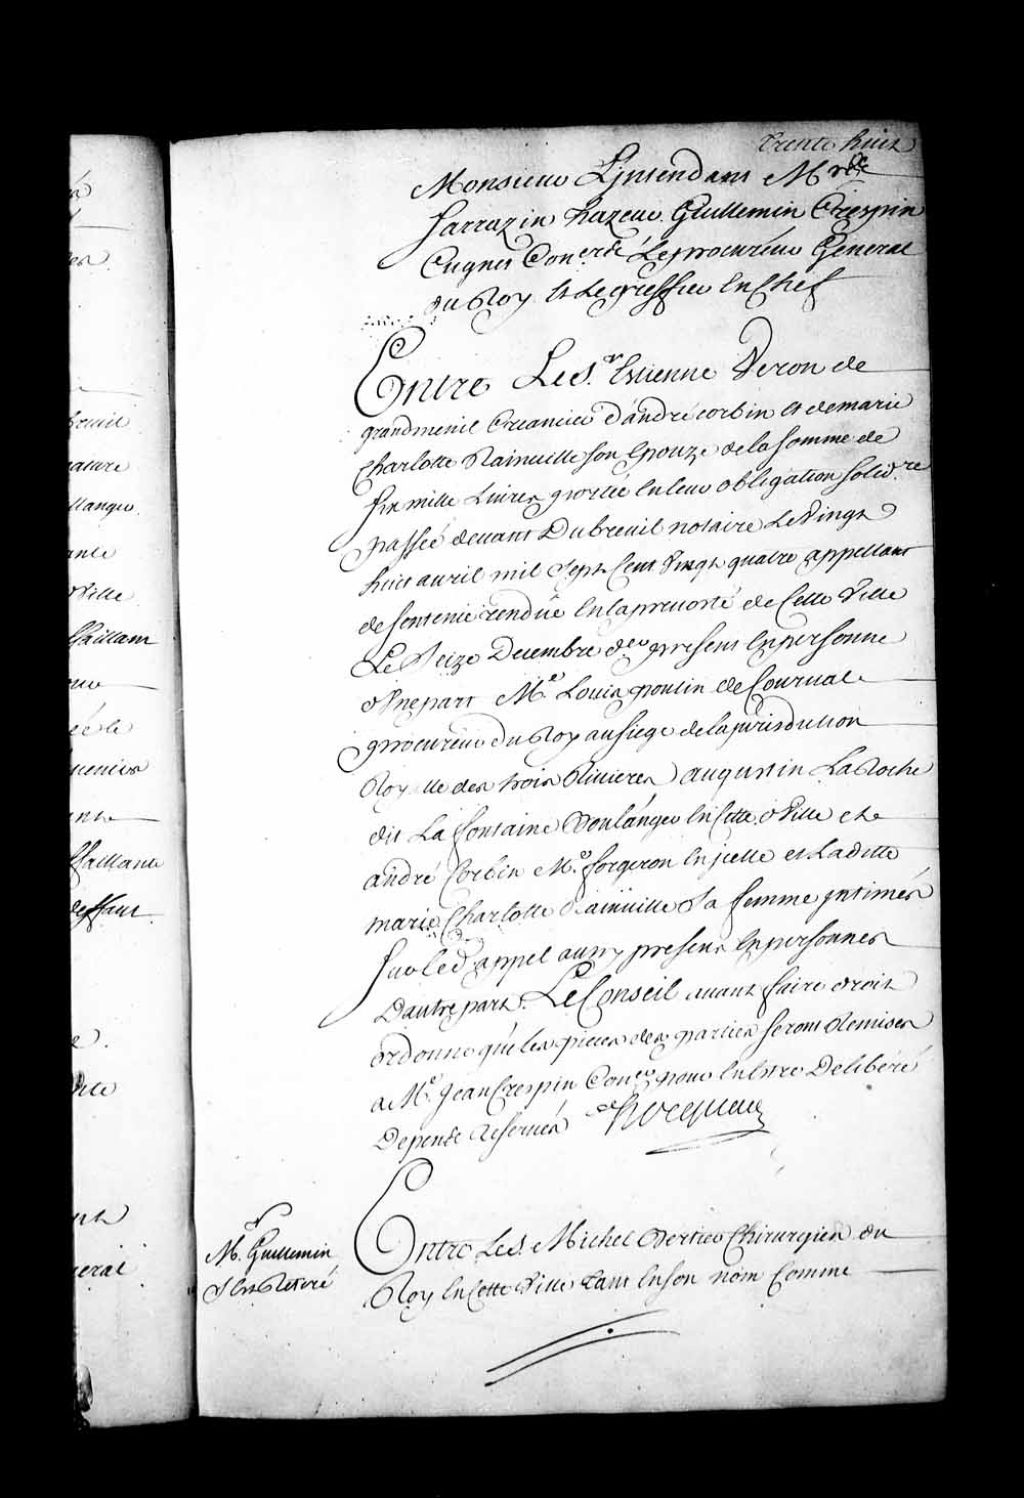 trente huit
Monsieur L'jntendant M.rs de
Sarrazin hazeur Guillemin Crespin
Cugnet Con.ers Le procureur General
du Roy Et Le greffier En Chef
Entre Le S.r Estienne Veron de
grandmenil Creancier d'andré corbin et de marie
charlotte Rainville son Epouze de la somme de
six mille Livres portée En leur obligation solid.re
passée devant Dubreuil notaire Le Vingt
huit avril mil Sept Cent Vingt quatre appellant
de sentence rendüe En la prevosté de Cette Ville
Le Seize Decembre d.er present En personne
d'Une part M.e Louis poulin de Courval
procureur du Roy au siege de la jurisdiction
Royalle des trois Rivieres augustin LaRoche
dit La fontaine Boulanger En Cette Ville et
andré Corbin M.e forgeron En jcelle et Laditte
marie Charlotte Rainville Sa femme jntimés
sur led. appel aussy presens En personnes
D'autre part. Le Conseil avant faire droit
ordonne que les pieces des parties seront Remises
a M.e Jean Crespin Con.er pour En Estre Deliberé
Depens Reservés Hocquart
M.r Guillemin
S'est Retiré
Entre Le S. Michel Bertier Chirurgien du
Roy En Cette Ville tant En son nom Comme
breuil
nature
ante
Ville
deffaut
eral